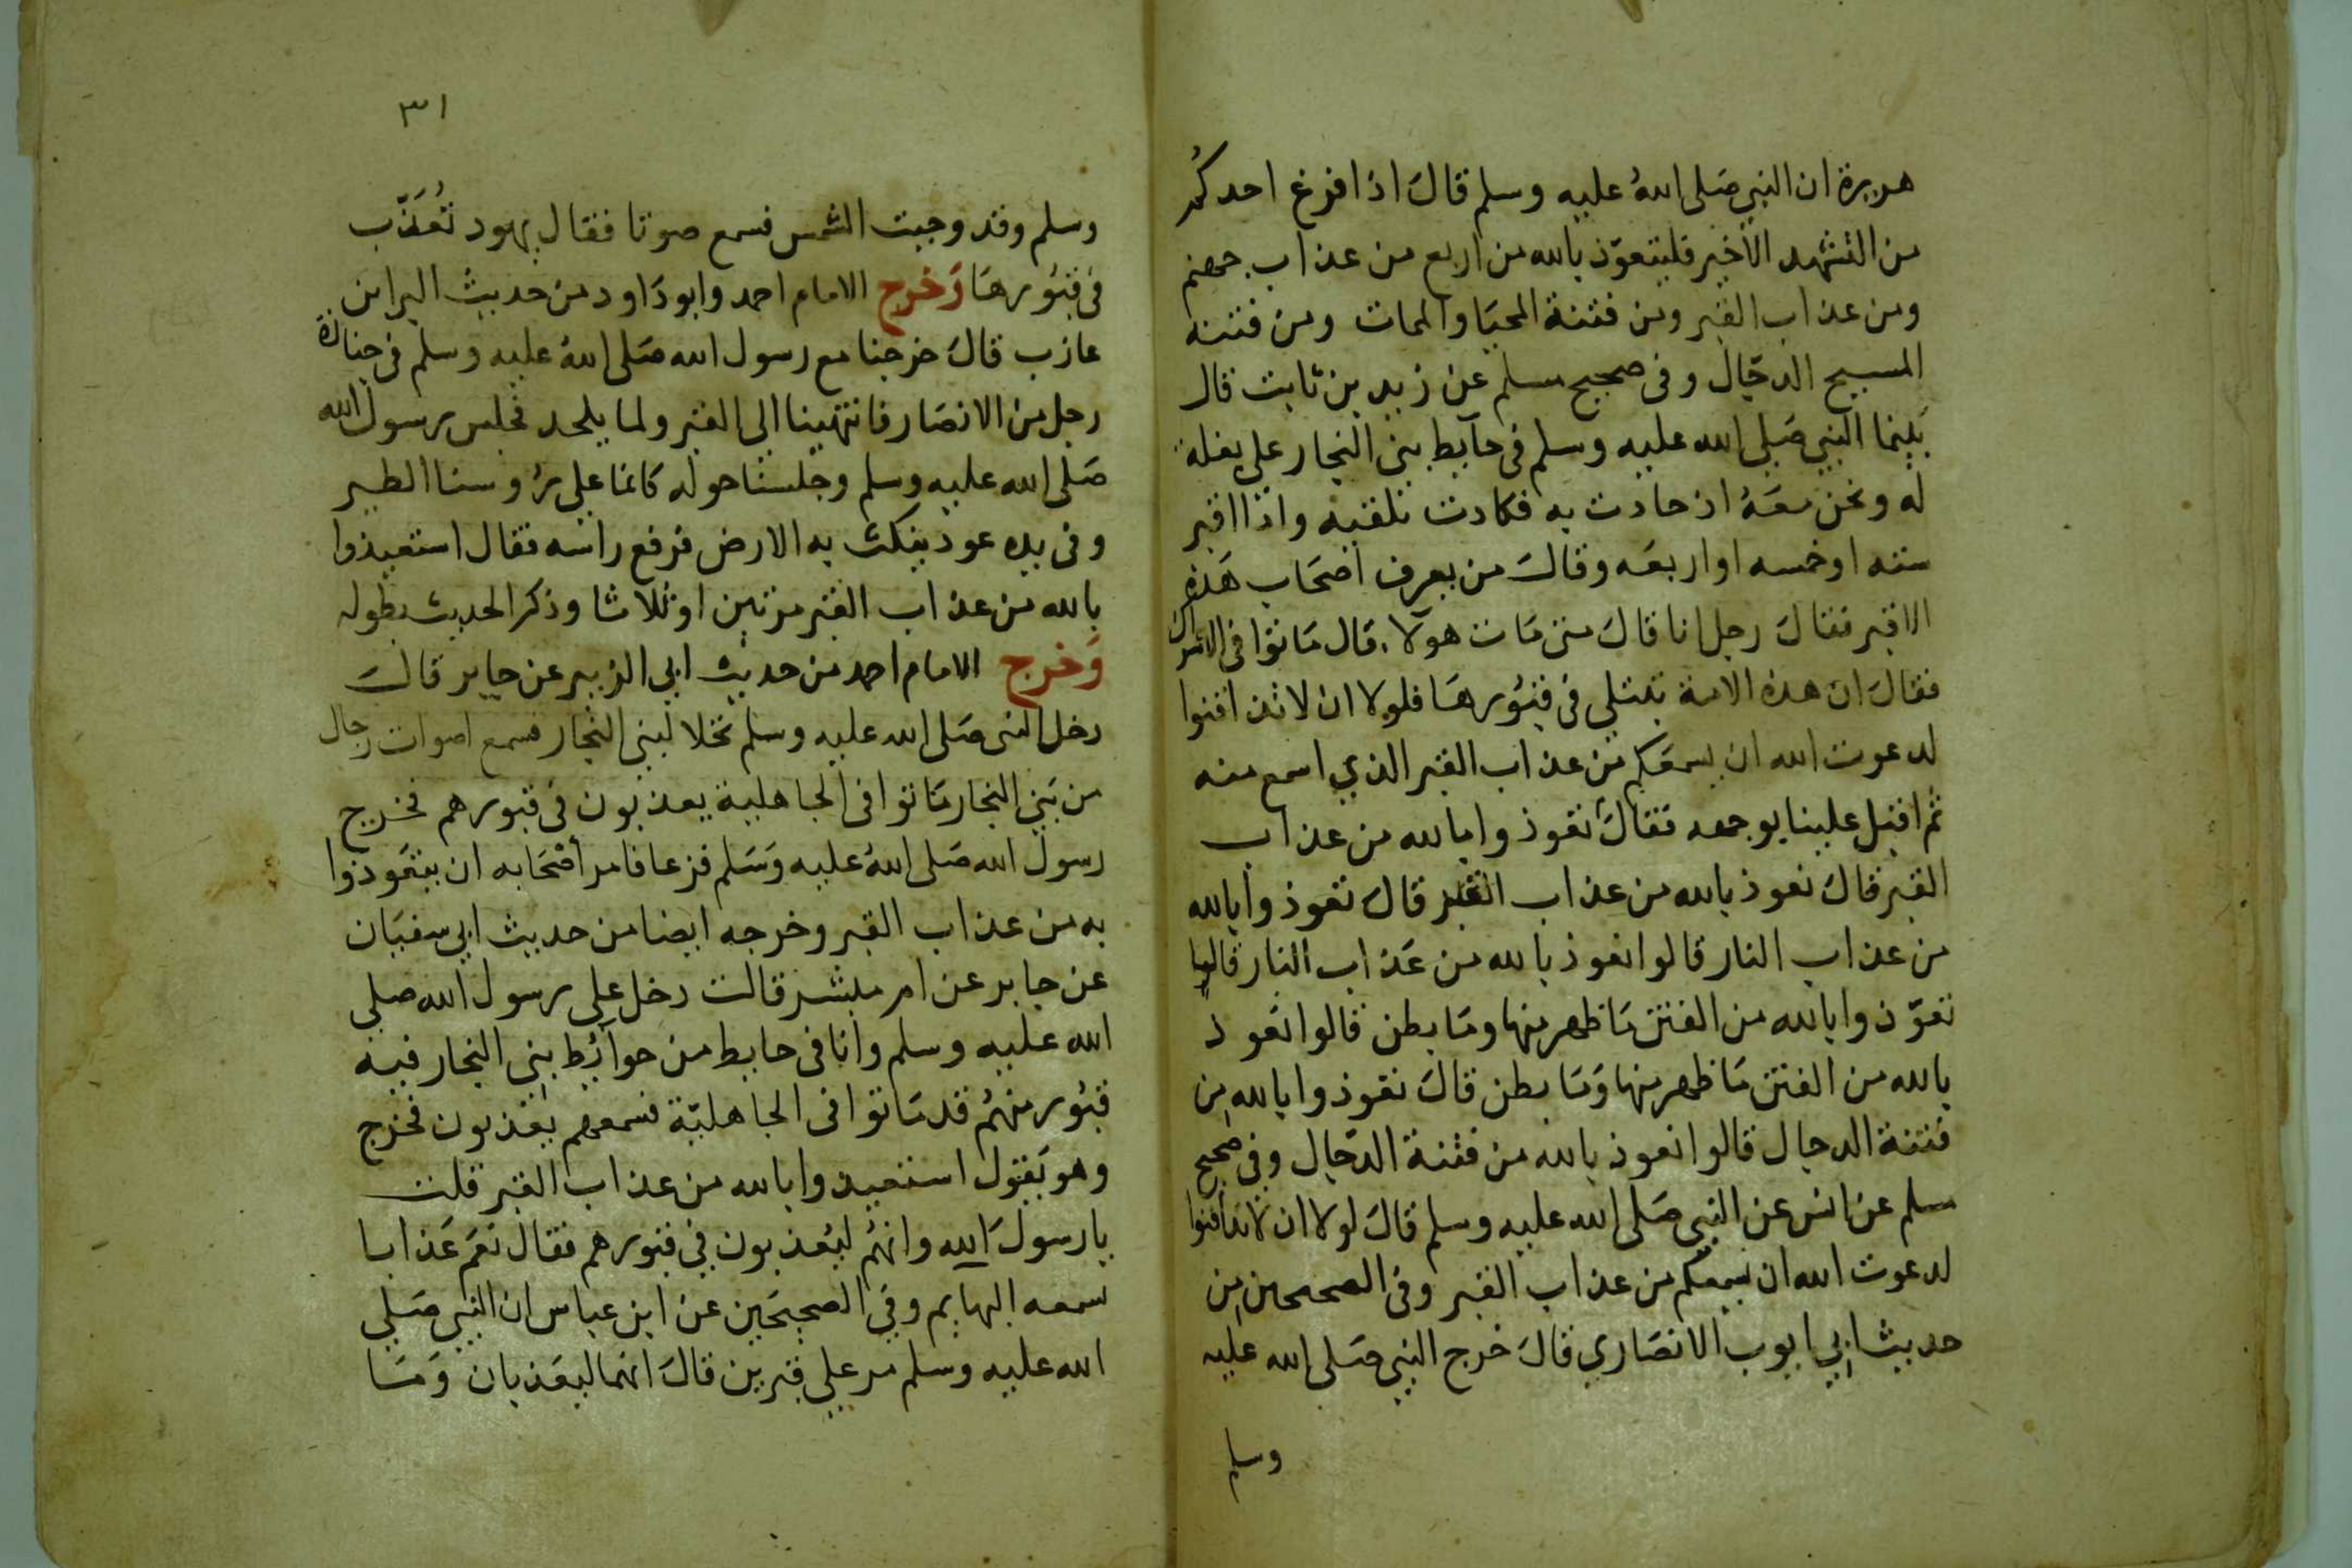 هريرة ان النبي صَلى اللهُ عليه وسلم قالَ اذا فرغ احدكُم
من التشهد الاخير فليتعوّذ بالله من اربع من عذاب جهنم
ومن عذاب القبر ومن فتنة المحيَا والممات ومن فتنه
المسيح الدجّال وفى صحيح مسلم عن زيد بن ثابت قال
بَينما النبي صَلى الله عليه وسلم فى حآيط بنى النجار على بغلة
له ونحن معَهُ اذ حادت به فكادت تلقيه واذا اقبر
سته او خمسه او اربعَه وقالَ من يعرف اصحَاب هَذه
الاقبر فقالَ رجل انا قالَ متى مَات هولآء قال مَاتوا فى الاشراك
فقالَ ان هذه الامة تبتلى فى قبُورهَا فلولا ان لا تدافنوا
لدعوت الله ان يسمعَكم من عذاب القبر الذي اسمع منه
ثم اقبل علينا بوجهه فقالَ تعوذوا بالله من عذاب
القبر قالَ نعوذ بالله من عذاب القبر قالَ تعوذوا بالله
من عذاب النار قالوا نعوذ بالله من عَذاب النار قالوا
تعوّذوا بالله من الفتن مَا ظهر منها ومَا بطن قالوا نعَوذ
بالله من الفتن مَا ظهر منها وَمَا بطن قالَ تعوذوا بالله من
فتنة الدجال قالوا نعوذ بالله من فتنة الدّجال وفى صحيح
مسلم عن انس عن النبي صَلى الله عليه وسلم قالَ لولا ان لا تدافنوا
لدعوت الله ان يسمعكم من عذاب القبر وفى الصحيحين من
حديث ابي ايوب الانصَاري قالَ خرج النبي صَلى الله عليه
وسلم
٣١
وسلم وقد وجبت الشمس فسمع صوتا فقال يهود تُعَذّب
فى قبُورهَا وَخرج الامام احمد وابو دَاود من حديث البراء بن
عازب قالَ خرجنا مع رسول الله صَلى اللهُ عليه وسلم فى جنازة
رجل من الانصَار فانتهينا الى القبر ولما يلحد فجلس رسول الله
صَلى الله عليه وسلم وجلسنا حوله كانما على رؤوسنا الطير
وفى يده عود ينكث به الارض فرفع راسه فقال استعيذوا
بالله من عذاب القبر مرتين او ثلاثا وذكر الحديث بطوله
وَخرج الامام احمد من حديث ابي الزبير عن جابر قالَ
دخل النبى صَلى الله عليه وسلم نخلا لبنى النجار فسمع اصوات رجال
من بَني النجار مَاتوا فى الجاهلية يعذبون فى قبورهم فخرج
رسول الله صَلى اللهُ عليه وَسَلم فزعا فامر أصْحَابه ان يتعَوذوا
به من عذاب القبر وخرجه ايضا من حديث ابي سفيَان
عن جابر عن ام مبشر قالت دخل على رسول الله صلى
الله عليه وسلم وانا فى حايط من حوآئط بني النجار فيه
قبُور منهُم قد مَاتوا فى الجاهليّة فسمعهم يعَذبون فخرج
وهو يَقول استعيذوا بالله من عذاب القبر قلت
يا رسولَ الله وانهُم ليُعذبون في قبورهم فقال نعَم عَذابا
سمعه البهايم وفي الصحيحَين عن ابن عباس ان النبي صَلي
الله عليه وسلم مر على قبرين قالَ انهما ليعَذبان وَمَا